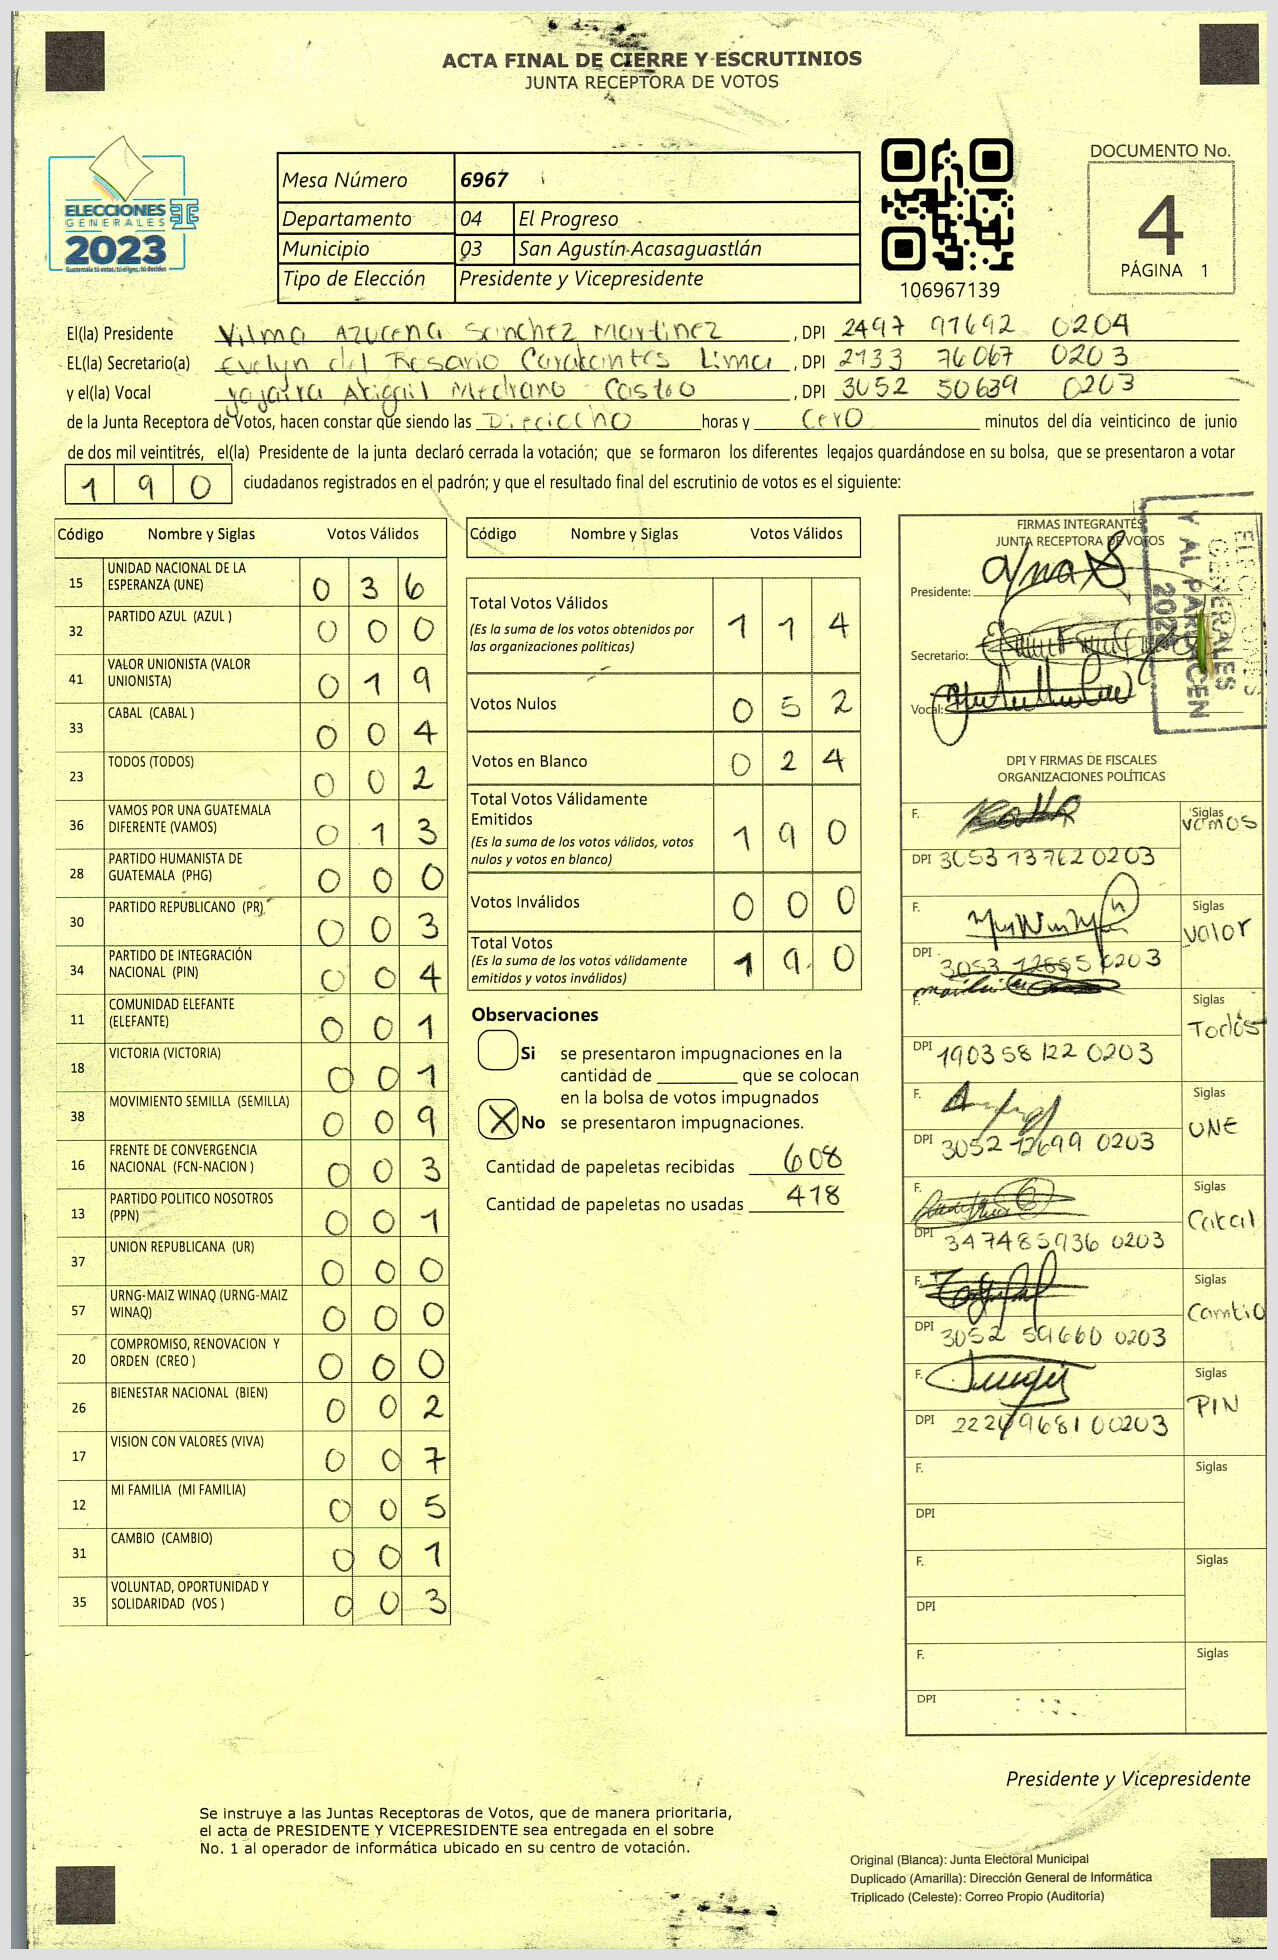 ACTA FINAL DE CIERRE Y ESCRUTINIOS
JUNTA RECEPTORA DE VOTOS
ELECCIONES
GENERALES
2023
Mesa Número 6967
Departamento 04 El Progreso
Municipio 03 San Agustín Acasaguastlán
Tipo de Elección Presidente y Vicepresidente
106967139
DOCUMENTO No.
4
PÁGINA 1
El(la) Presidente Vilma Azucena Sanchez Martinez, DPI 2497 97692 0204
EL(la) Secretario(a) Evelyn del Rosario Caratantes Lima, DPI 2133 76067 0203
y el(la) Vocal Yajaira Abigail Medrano Castro, DPI 3052 50639 0203
de la Junta Receptora de Votos, hacen constar que siendo las Dieciocho horas y Cero minutos del día veinticinco de junio
de dos mil veintitrés, el(la) Presidente de la junta declaró cerrada la votación; que se formaron los diferentes legajos guardándose en su bolsa, que se presentaron a votar
190 ciudadanos registrados en el padrón; y que el resultado final del escrutinio de votos es el siguiente:
Código Nombre y Siglas Votos Válidos
15 UNIDAD NACIONAL DE LA ESPERANZA (UNE) 036
32 PARTIDO AZUL (AZUL ) 000
41 VALOR UNIONISTA (VALOR UNIONISTA) 019
33 CABAL (CABAL ) 004
23 TODOS (TODOS) 002
36 VAMOS POR UNA GUATEMALA DIFERENTE (VAMOS) 013
28 PARTIDO HUMANISTA DE GUATEMALA (PHG) 000
30 PARTIDO REPUBLICANO (PR) 003
34 PARTIDO DE INTEGRACIÓN NACIONAL (PIN) 004
11 COMUNIDAD ELEFANTE (ELEFANTE) 001
18 VICTORIA (VICTORIA) 001
38 MOVIMIENTO SEMILLA (SEMILLA) 009
16 FRENTE DE CONVERGENCIA NACIONAL (FCN-NACION ) 003
13 PARTIDO POLITICO NOSOTROS (PPN) 001
37 UNION REPUBLICANA (UR) 000
57 URNG-MAIZ WINAQ (URNG-MAIZ WINAQ) 000
20 COMPROMISO, RENOVACION Y ORDEN (CREO ) 000
26 BIENESTAR NACIONAL (BIEN) 002
17 VISION CON VALORES (VIVA) 007
12 MI FAMILIA (MI FAMILIA) 005
31 CAMBIO (CAMBIO) 001
35 VOLUNTAD, OPORTUNIDAD Y SOLIDARIDAD (VOS ) 003
Código Nombre y Siglas Votos Válidos
Total Votos Válidos 114
(Es la suma de los votos obtenidos por
las organizaciones políticas)
Votos Nulos 052
Votos en Blanco 024
Total Votos Válidamente
Emitidos 190
(Es la suma de los votos válidos, votos
nulos y votos en blanco)
Votos Inválidos 000
Total Votos 190
(Es la suma de los votos válidamente
emitidos y votos inválidos)
Observaciones
Si se presentaron impugnaciones en la
cantidad de ________ que se colocan
en la bolsa de votos impugnados
X No se presentaron impugnaciones.
Cantidad de papeletas recibidas 608
Cantidad de papeletas no usadas 418
FIRMAS INTEGRANTES
JUNTA RECEPTORA DE VOTOS
Presidente:
Secretario:
Vocal:
GENERALES
Y AL PARLACEN
2023
DPI Y FIRMAS DE FISCALES
ORGANIZACIONES POLÍTICAS
F. Siglas vamos
DPI 3053 13762 0203
F. Siglas valor
DPI 3053 12655 0203
F. Siglas Todos
DPI 1903 58122 0203
F. Siglas UNE
DPI 3052 12699 0203
F. Siglas Cabal
DPI 347485936 0203
F. Siglas Cambio
DPI 3052 59660 0203
F. Siglas PIN
DPI 2224968100203
F. Siglas
DPI
F. Siglas
DPI
F. Siglas
DPI
Presidente y Vicepresidente
Se instruye a las Juntas Receptoras de Votos, que de manera prioritaria,
el acta de PRESIDENTE Y VICEPRESIDENTE sea entregada en el sobre
No. 1 al operador de informática ubicado en su centro de votación.
Original (Blanca): Junta Electoral Municipal
Duplicado (Amarilla): Dirección General de Informática
Triplicado (Celeste): Correo Propio (Auditoría)